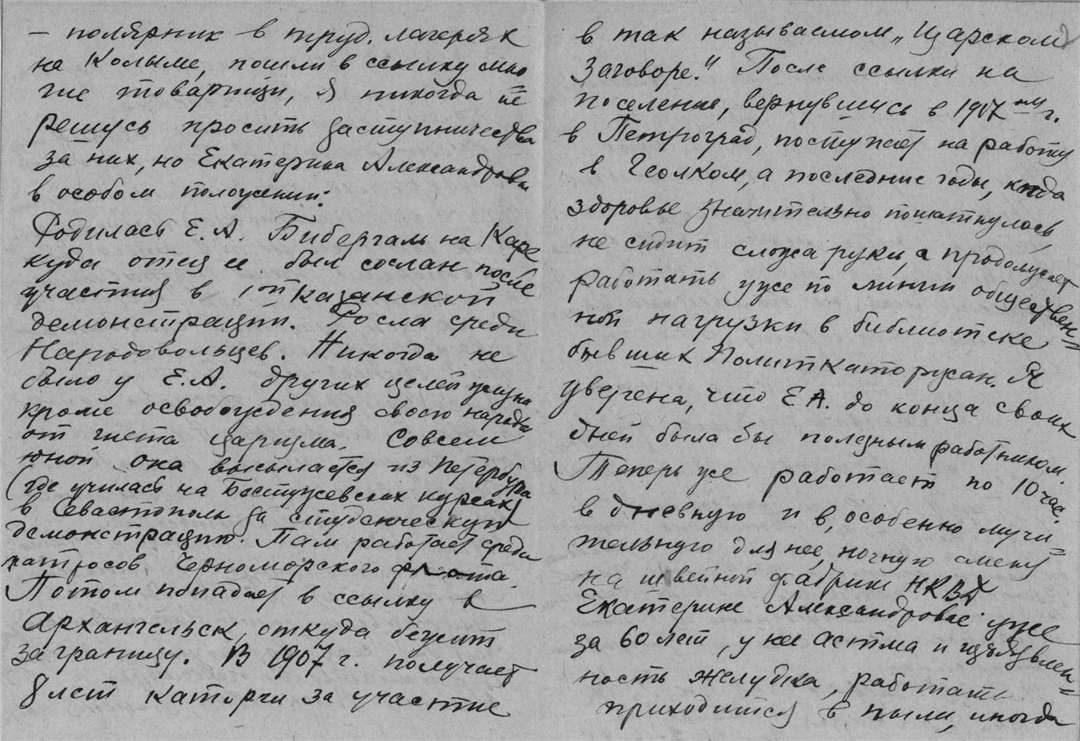 — полярник в труд. лагерях
на Колыме, пошли в ссылку мно
гие товарищи, я никогда не
решусь просить заступничества
за них, но Екатерина Александровна
в особом положении:
Родилась Е. А. Бибергаль на Каре
куда отец ее был сослан после
участия в 1ой Казанской
демонстрации. Росла среди
Народовольцев. Никогда не
было у Е. А. других целей жизни
кроме освобождения своего народа
от гнета царизма. Совсем
юной она высылается из Петербурга
(где училась на Бестужевских курсах)
в Севастополь за студенческую
демонстрацию. Там работает среди
матросов Черноморского флота.
Потом попадает в ссылку в
Архангельск, откуда бежит
за границу. В 1907 г. получает
8 лет каторги за участие
в так называемом „Царском
Заговоре." После ссылки на
поселение, вернувшись в 1917ом г.
в Петроград, поступает на работу
в Геолком, а последние годы, когда
здоровье значительно пошатнулось,
не сидит сложа руки, а продолжает
работать уже по линии обществен=
ной нагрузки в библиотеке
бывших Политкаторжан. Я
уверена, что Е. А. до конца своих
дней была бы полезным работником.
Теперь же работает по 10 час.
в дневную и в, особенно мучи=
тельную для нее, ночную смену
на швейной фабрике НКВД
Екатерине Александровне уже
за 60 лет, у нее астма и изъязвлен=
ность желудка, работать
приходится в пыли, иногда